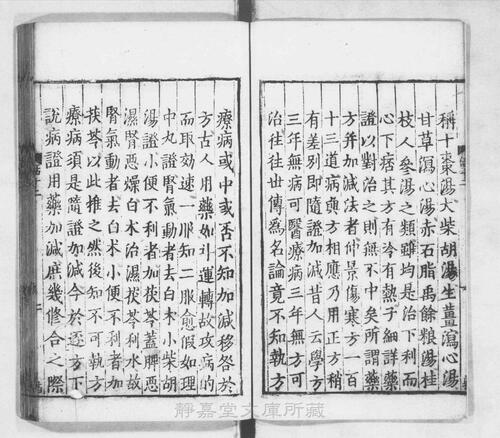 稱十棗湯大柴胡湯生薑瀉心湯
甘草瀉心湯赤石脂禹餘粮湯桂
枝人參湯之類雖均是治下利而
心下痞其方有冷有熱子細詳藥
證以對治之則無不中矣所謂藥
方并加減法者仲景傷寒方一百
十三道病與方相應乃用正方稍
有差別即隨證加減昔人云學方
三年無病可醫療病三年無方可
治往往世傳爲名論竟不知執方
療病或中或否不知加減移咎於
方古人用藥如
運轉故攻病的
而取効速一服知二服愈假如理
中丸證腎氣動者去白术小柴胡
湯證小便不利者加茯苓蓋脾惡
濕腎惡燥白术治濕茯苓利水故
腎氣動者去白术小便不利者加
茯苓以此推之然後知不可執方
療病須是隨證加減今於逐方下
說病證用藥加減庶幾修合之際
靜嘉堂文庫所藏